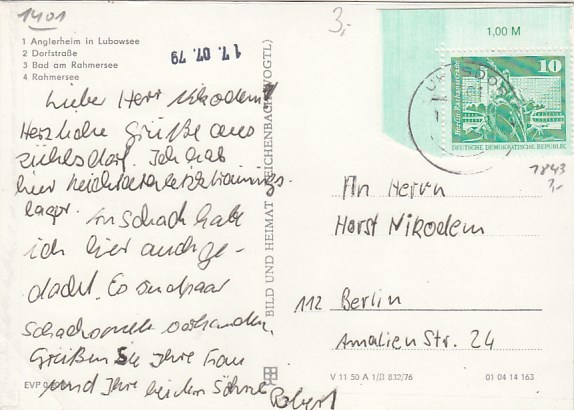 1401
3,-
1 Anglerheim in Lubowsee
2 Dorfstraße
3 Bad am Rahmersee
4 Rahmersee
17. 07. 79
Lieber Herr Nikodem!
Herzliche Grüße aus
Zühlsdorf. Ich hab
hier
lager. An Schach habe
ich hier auch ge-
dacht. Es sind paar
vorhanden.
Grüßen Sie Ihre Frau
und Ihre beiden Söhne
Robert
EVP
BILD UND HEIMAT REICHENBACH (VOGTL)
1,00 M
10
Berlin Rathausstraße
DEUTSCHE DEMOKRATISCHE REPUBLIK
1843
3,-
An Herrn
Horst Nikodem
112 Berlin
Amalien Str. 24
V 11 50 A 1/B 832/76
01 04 14 163